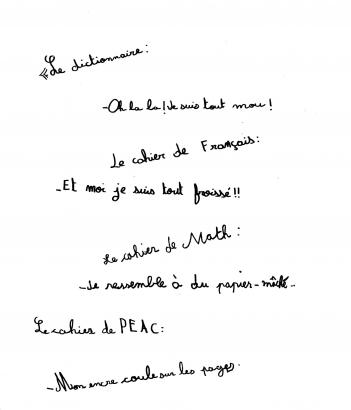 «Le dictionnaire:
-Oh la la! Je suis tout mou!
Le cahier de Français:
-Et moi je suis tout froissé!!
Le cahier de Math:
-Je ressemble à du papier-mâché..
Le cahier de PEAC:
-Mon encre coule sur les pages.